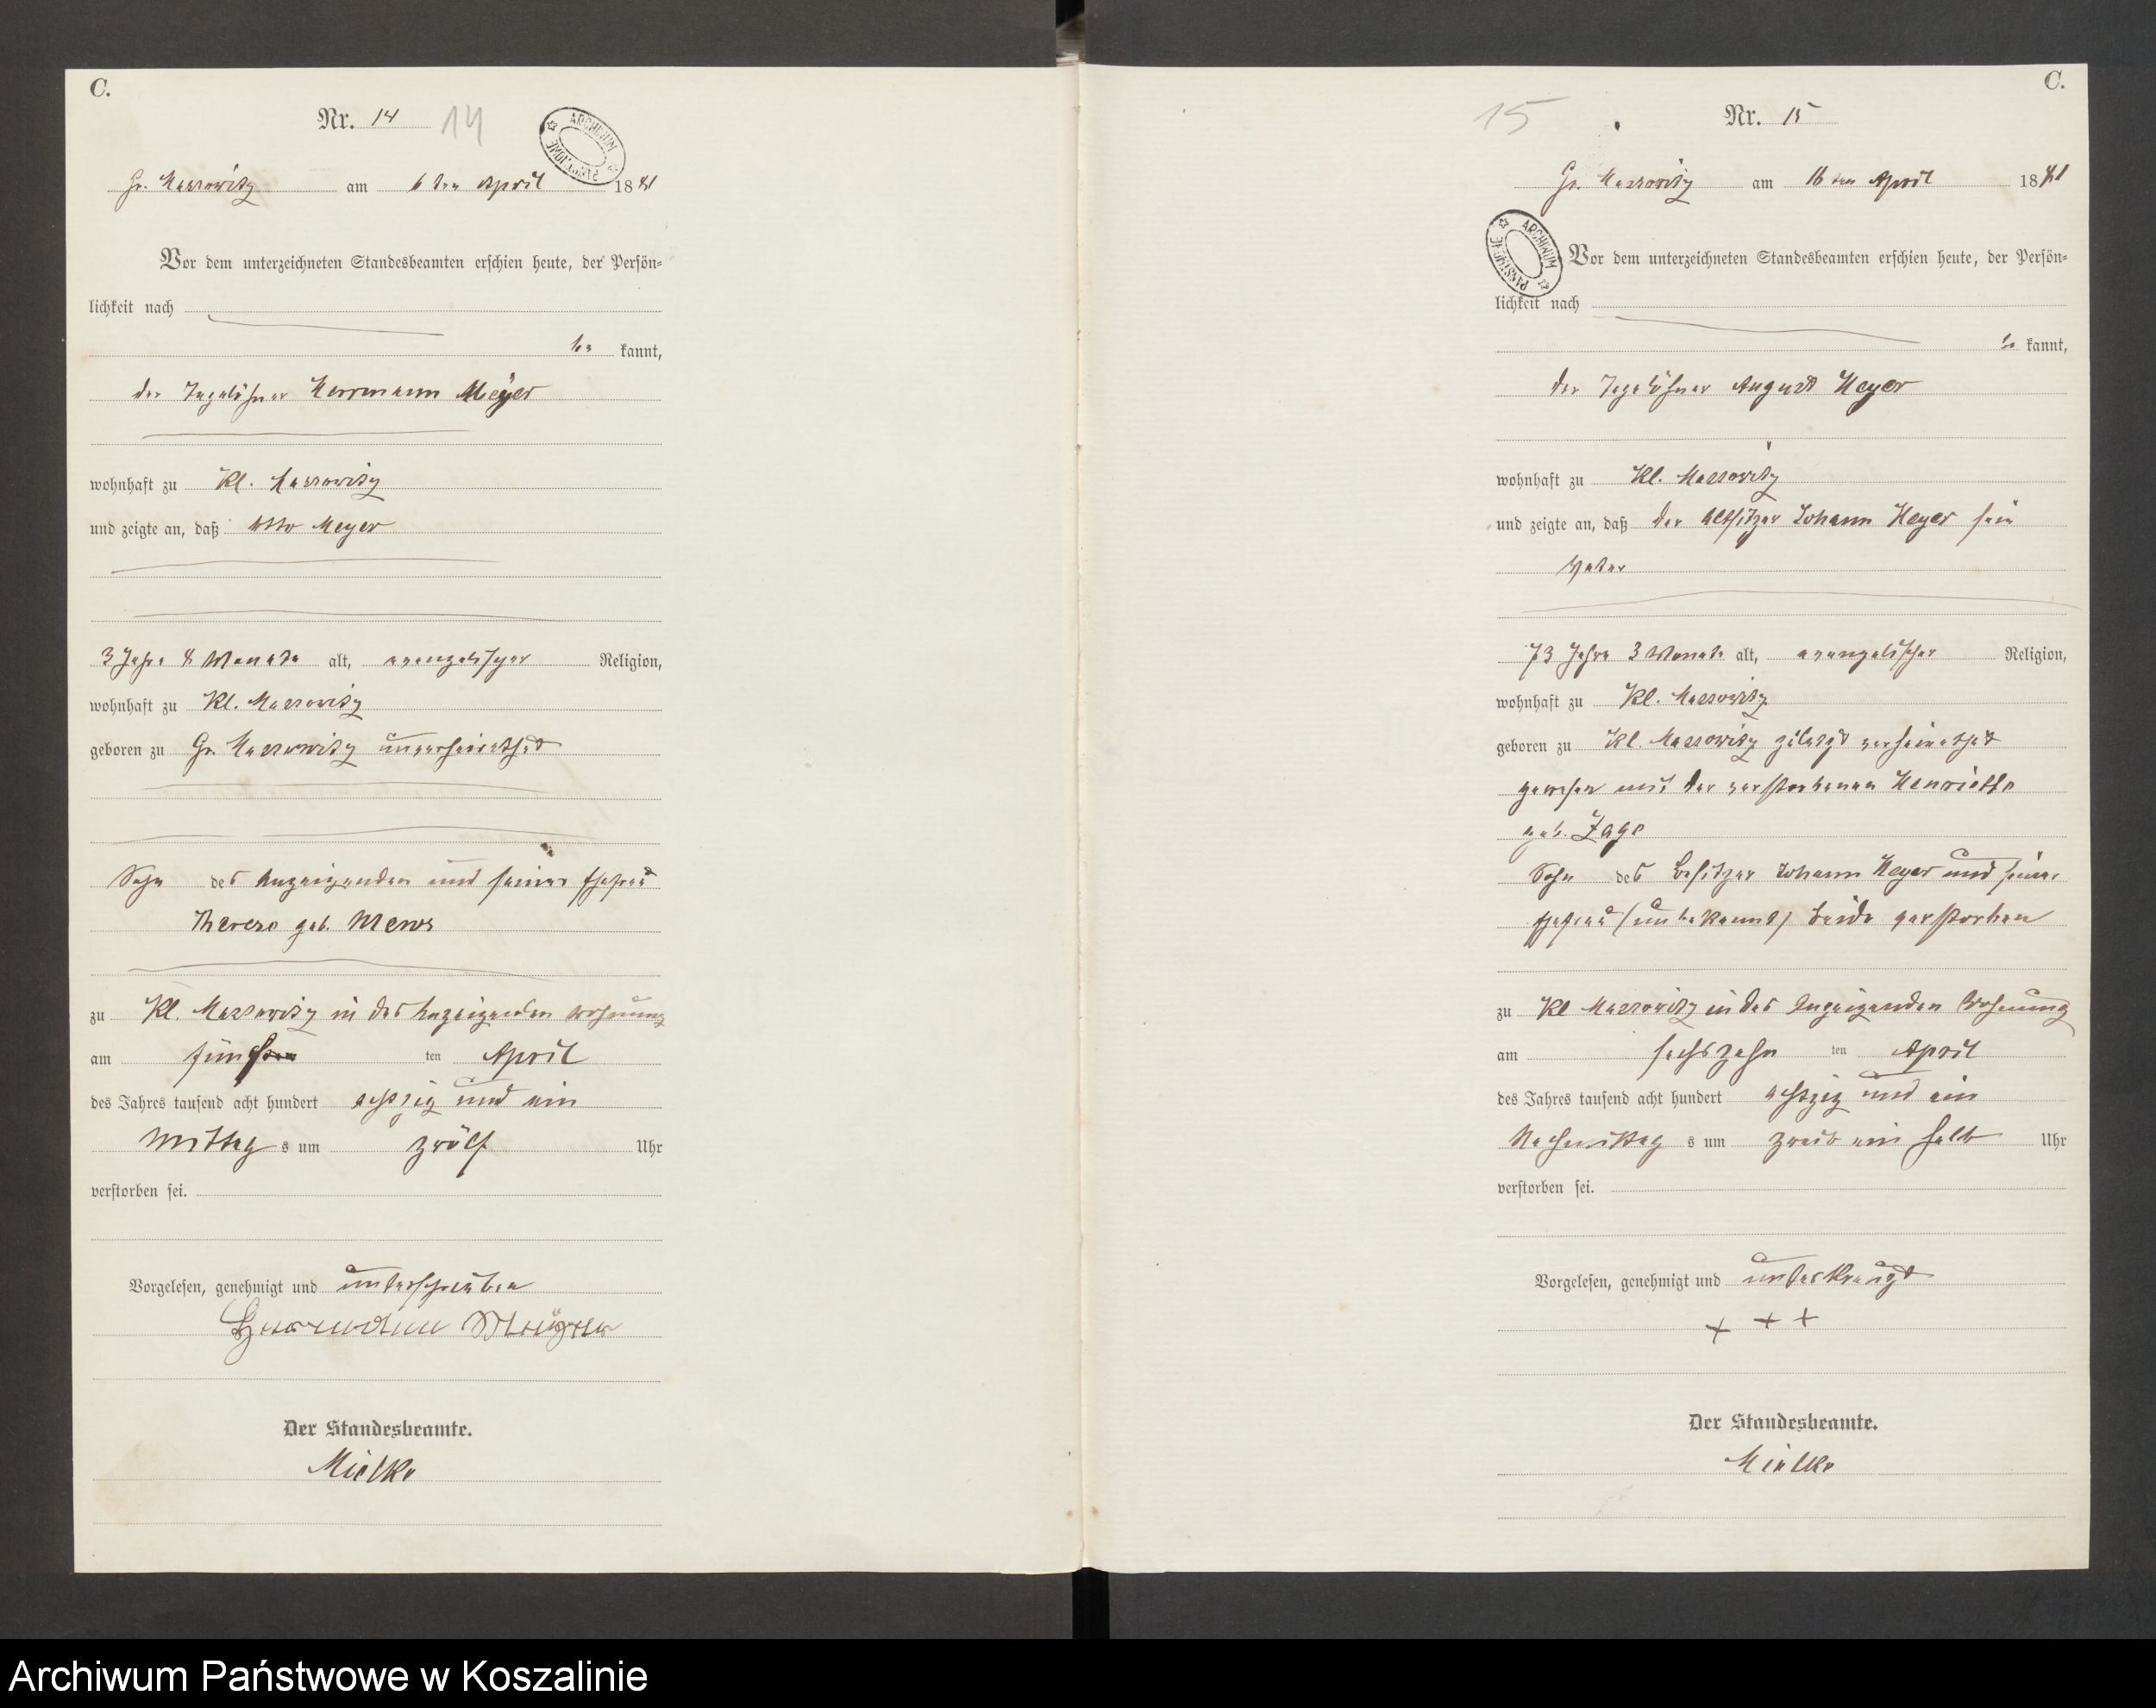 C.
Nr. 14 14
ARCHIWUM PAŃSTWOWE
Gr. Massowitz am 6 ten April 1881
Vor dem unterzeichneten Standesbeamten erschien heute, der Persön-
lichkeit nach
be kannt,
der Tagelöhner Herrmann Meyer
wohnhaft zu Kl. Massowitz
und zeigte an, daß Otto Meyer
3 Jahre 8 Monate alt, evangelischer Religion,
wohnhaft zu Kl. Massowitz
geboren zu Gr. Massowitz unverheirathet
Sohn des Anzeigenden und seiner Ehefrau
Therese geb. Mews
zu Kl. Massowitz in des Anzeigenden Wohnung
am fünften April
des Jahres tausend acht hundert achtzig und ein
Mittag s um zwölf Uhr
verstorben sei.
Vorgelesen, genehmigt und unterschrieben
Herrmann Meyer
Der Standesbeamte.
Mielke
C.
15 Nr. 15
Gr. Massowitz am 16 ten April 1881
ARCHIWUM PAŃSTWOWE
Vor dem unterzeichneten Standesbeamten erschien heute, der Persön-
lichkeit nach
be kannt,
der Tagelöhner August Heyer
wohnhaft zu Kl. Massowitz
und zeigte an, daß der Altsitzer Johann Heyer sein
Vater
73 Jahre 3 Monate alt, evangelischer Religion,
wohnhaft zu Kl. Massowitz
geboren zu Kl. Massowitz zuletzt verheirathet
gewesen mit der verstorbenen Henriette
geb. Zage
Sohn des Besitzer Johann Heyer und seiner
Ehefrau (unbekannt) beide verstorben
zu Kl Massowitz in des Anzeigenden Wohnung
am sechszehn ten April
des Jahres tausend acht hundert achtzig und ein
Nachmittag s um zwei ein halb Uhr
verstorben sei.
Vorgelesen, genehmigt und unterkreuzt
+ + +
Der Standesbeamte.
Mielke
Archiwum Państwowe w Koszalinie